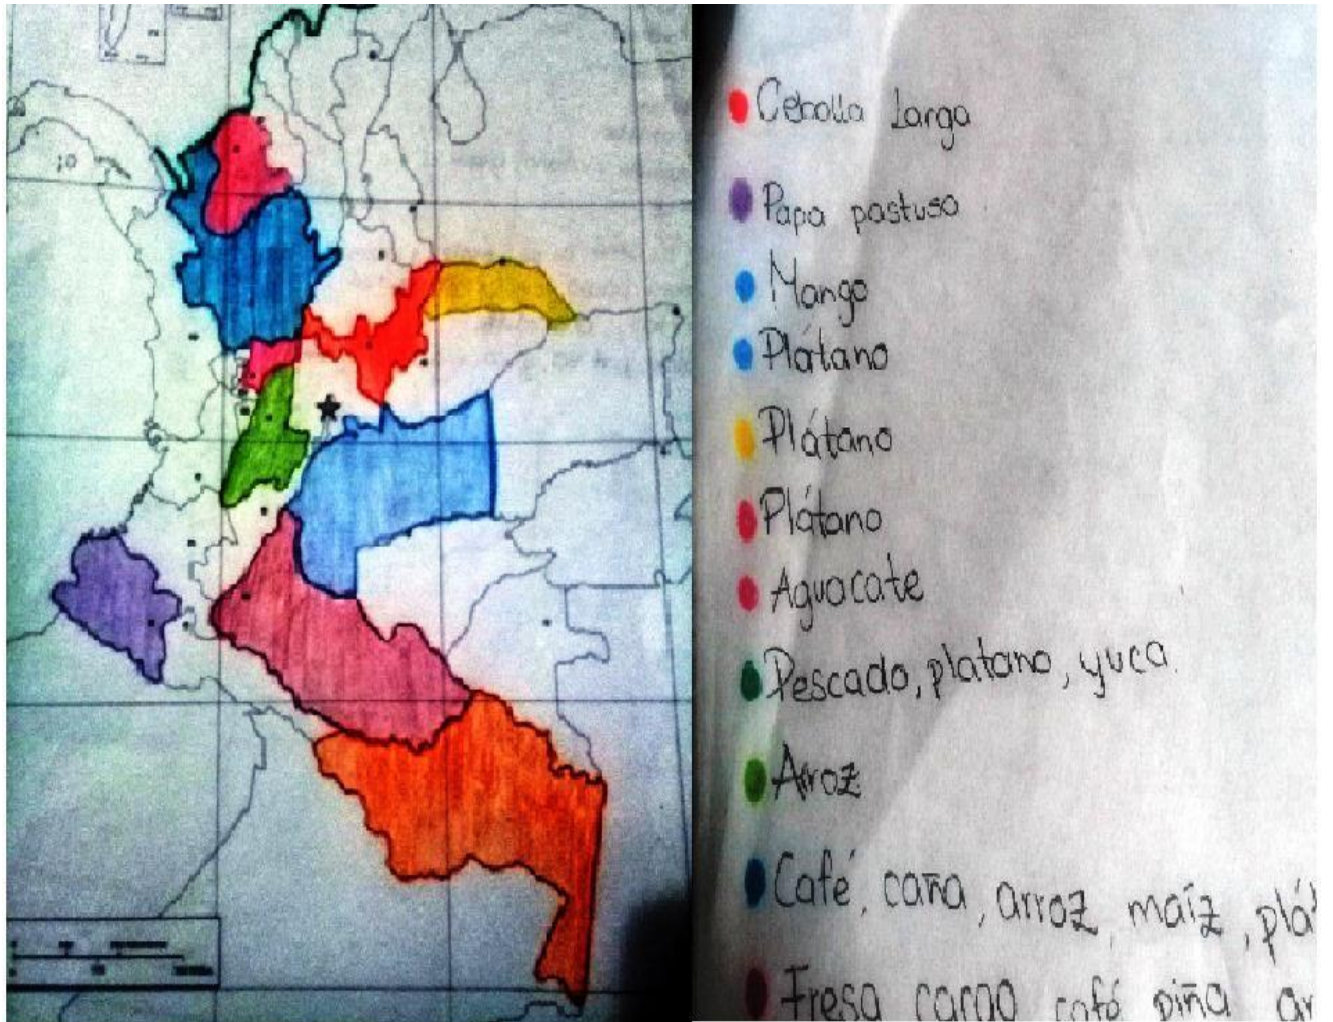 10
Cebolla Larga
Papa pastusa
Mango
Plátano
Plátano
Plátano
Aguacate
Pescado, platano, yuca.
Arroz
Café, caña, arroz, maíz, plát
Fresa cacao café piña ar